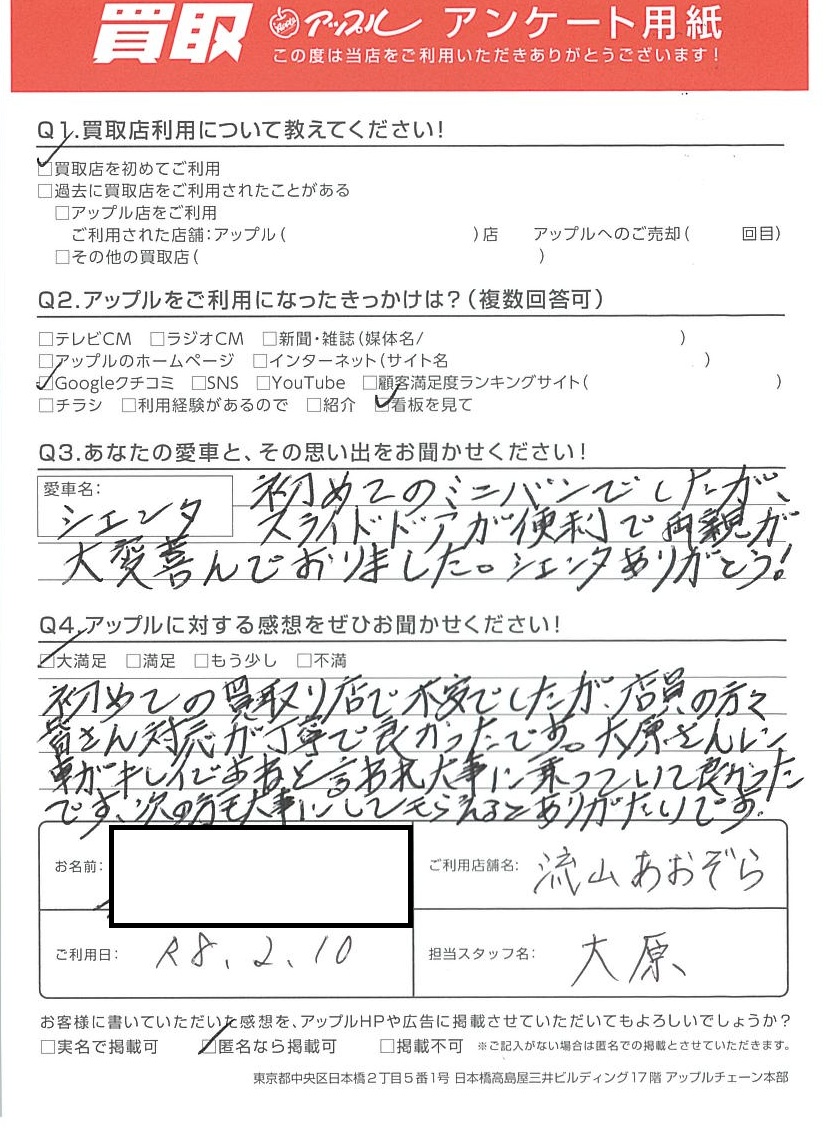 買取 アップル アンケート用紙
この度は当店をご利用いただきありがとうございます!
Q1.買取店利用について教えてください!
☑買取店を初めてご利用
□過去に買取店をご利用されたことがある
□アップル店をご利用
ご利用された店舗:アップル( )店 アップルへのご売却( 回目)
□その他の買取店( )
Q2.アップルをご利用になったきっかけは?(複数回答可)
□テレビCM □ラジオCM □新聞・雑誌(媒体名/ )
□アップルのホームページ □インターネット(サイト名 )
☑Googleクチコミ □SNS □YouTube □顧客満足度ランキングサイト( )
□チラシ □利用経験があるので □紹介 ☑看板を見て
Q3.あなたの愛車と、その思い出をお聞かせください!
愛車名: シエンタ
初めてのミニバンでしたが、
スライドドアが便利で両親が
大変喜んでおりました。シエンタありがとう!
Q4.アップルに対する感想をぜひお聞かせください!
☑大満足 □満足 □もう少し □不満
初めての買取り店で不安でしたが、店員の方々
皆さん対応が丁寧で良かったです。大原さんに
車がキレイであると言われ大事に乗っていて良かった
です、次の方も大事にしてもらえるとありがたいです。
お名前:
ご利用店舗名: 流山あおぞら
ご利用日: R8.2.10
担当スタッフ名: 大原
お客様に書いていただいた感想を、アップルHPや広告に掲載させていただいてもよろしいでしょうか?
□実名で掲載可 ☑匿名なら掲載可 □掲載不可 ※ご記入がない場合は匿名での掲載とさせていただきます。
東京都中央区日本橋2丁目5番1号 日本橋高島屋三井ビルディング17階 アップルチェーン本部